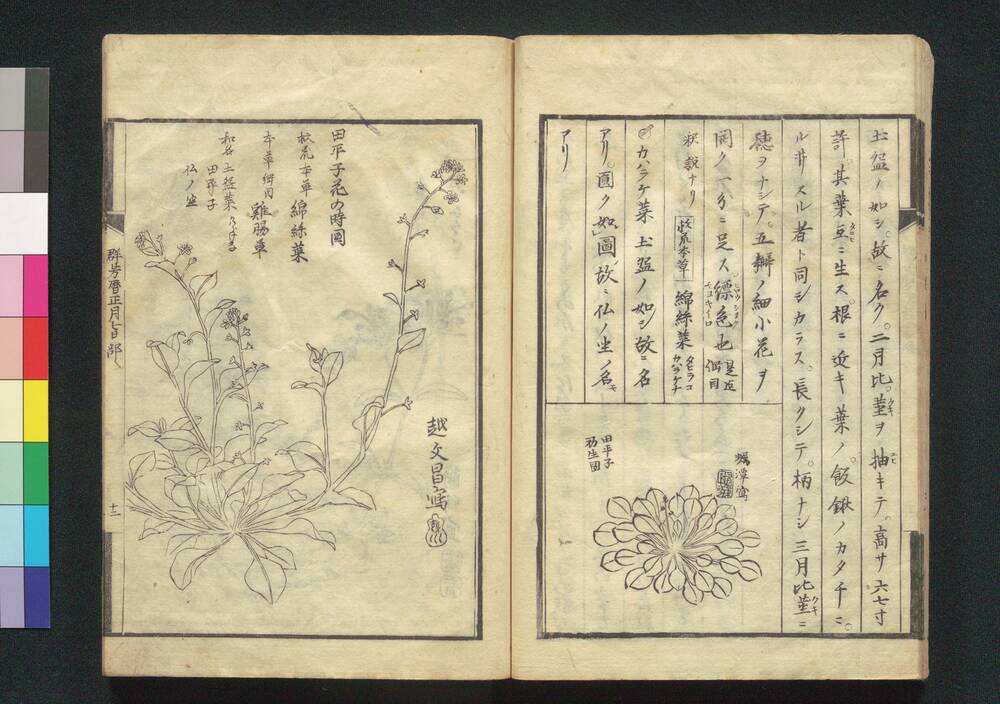 土盆ノ如シ。故ニ名ク。二月比。莖ヲ抽キテ。高サ六七寸
許。其葉互ニ生ス。根ニ近キ葉ノ。飯鍬ノカタチニ。
ル幷スル者ト同シカラス。長クシテ。柄ナシ三月比莖ニ
穂ヲナシテ。五瓣ノ細小花ヲ
開ク一分ニ足ス縹色也
釈説ナリ 救荒本草 綿絲菜 タビラコ カハラケナ
カハラケ菜 土盆ノ如シ故ニ名
アリ。圓ク如圖故ニ仏ノ坐ノ名
アリ
田平子
初生圖
田平子花の時圖
救荒本草 綿絲菜
本草綱目 雞腸草
和名 土盆菜
田平子
仏ノ坐
越文昌寫
群芳暦正月七日部
十二